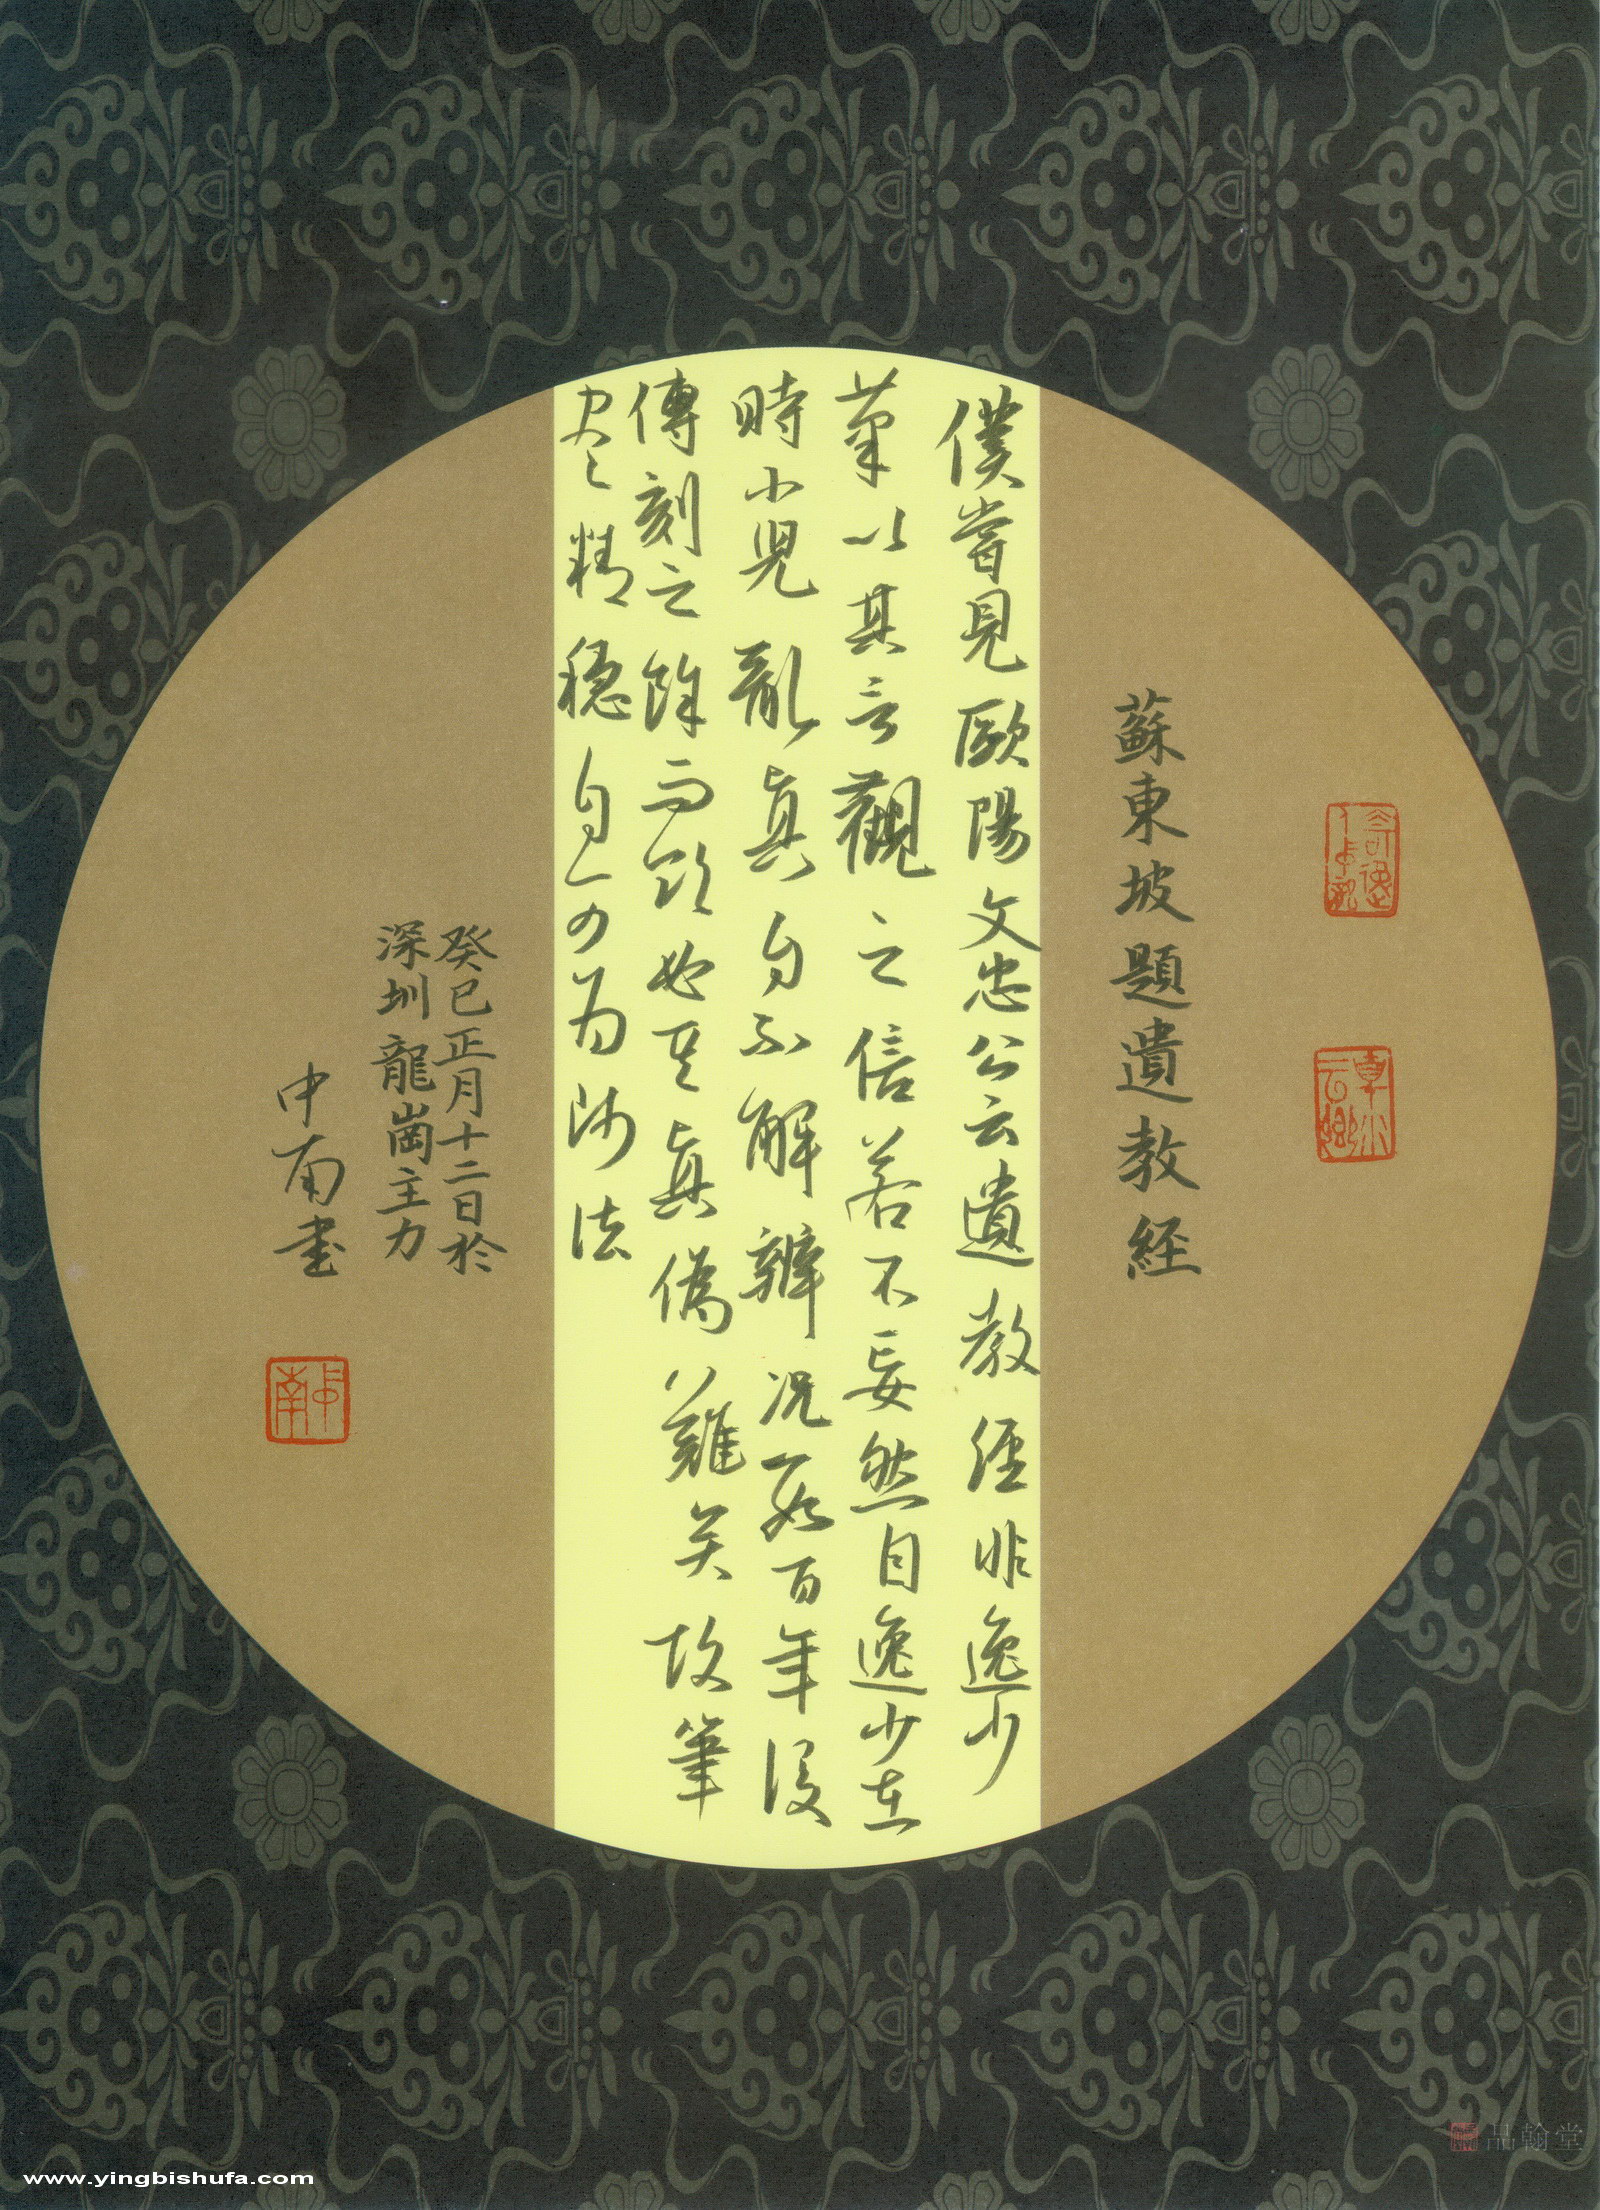 蘇東坡題遺教経
僕嘗見歐陽文忠公云遺教經非逸少
筆以其言觀之信若不妄然自逸少在
時小兒亂真自不解辨況數百年後
傳刻之餘而欲必其真偽難矣故筆
畫精穩自可為師法
癸巳正月十二日於
深圳龍崗主力
中南書
品翰堂
www.yingbishufa.com